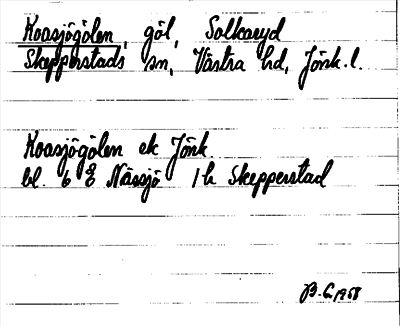 Koasjögölen, göl, Solkaryd
Skepperstads sn, Västra hd, Jönk. l.
Koasjögölen ek Jönk.
bl. 6 E Nässjö 1 h Skepperstad
B.G. 1958